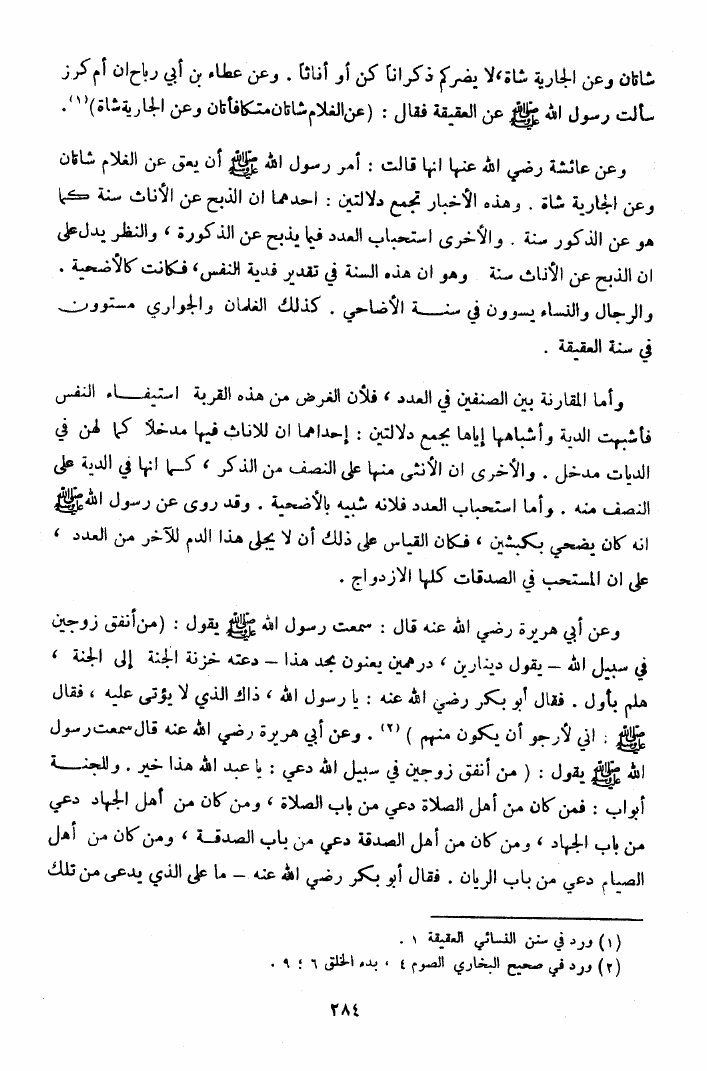 شاتان وعن الجارية شاة، لا يضركم ذكراناً كن أو أناثاً . وعن عطاء بن أبي رباح ان أم كرز
سألت رسول الله ﷺ عن العقيقة فقال : (عن الغلام شاتان متكافأتان وعن الجارية شاة)(١).
وعن عائشة رضي الله عنها انها قالت : أمر رسول الله ﷺ أن يعق عن الغلام شاتان
وعن الجارية شاة . وهذه الأخبار تجمع دلالتين : احدهما ان الذبح عن الأناث سنة كما
هو عن الذكور سنة . والأخرى استحباب العدد فيما يذبح عن الذكورة ، والنظر يدل على
ان الذبح عن الأناث سنة وهو ان هذه السنة في تقدير فدية النفس، فكانت كالأضحية .
والرجال والنساء يسوون في سنة الأضاحي . كذلك الغلمان والجواري مستوون
في سنة العقيقة .
وأما المقارنة بين الصنفين في العدد ، فلأن الغرض من هذه القربة استيفاء النفس
فأشبهت الدية وأشباهها إياها يجمع دلالتين : إحداهما ان للاناث فيها مدخلاً كما لهن في
الديات مدخل . والأخرى ان الأنثى منها على النصف من الذكر ، كما انها في الدية على
النصف منه . وأما استحباب العدد فلانه شبيه بالأضحية . وقد روى عن رسول الله ﷺ
انه كان يضحي بكبشين ، فكان القياس على ذلك أن لا يجلى هذا الدم للآخر من العدد ،
على ان المستحب في الصدقات كلها الازدواج .
وعن أبي هريرة رضي الله عنه قال : سمعت رسول الله ﷺ يقول : (من أنفق زوجين
في سبيل الله – يقول دينارين ، درهمين يعنون بحد هذا – دعته خزنة الجنة إلى الجنة ،
هلم بأول . فقال أبو بكر رضي الله عنه : يا رسول الله ، ذاك الذي لا يؤتى عليه ، فقال
ﷺ : اني لأرجو أن يكون منهم ) (٢) . وعن أبي هريرة رضي الله عنه قال سمعت رسول
الله ﷺ يقول : ( من أنفق زوجين في سبيل الله دعي : يا عبد الله هذا خير . وللجنة
أبواب : فمن كان من أهل الصلاة دعي من باب الصلاة ، ومن كان من أهل الجهاد دعي
من باب الجهاد ، ومن كان من أهل الصدقة دعي من باب الصدقة ، ومن كان من أهل
الصيام دعي من باب الريان . فقال أبو بكر رضي الله عنه – ما على الذي يدعى من تلك
(١) ورد في سنن النسائي العقيقة ١ .
(٢) ورد في صحيح البخاري الصوم ٤ ، بدء الخلق ٦ ؛ ٩ .
٢٨٤